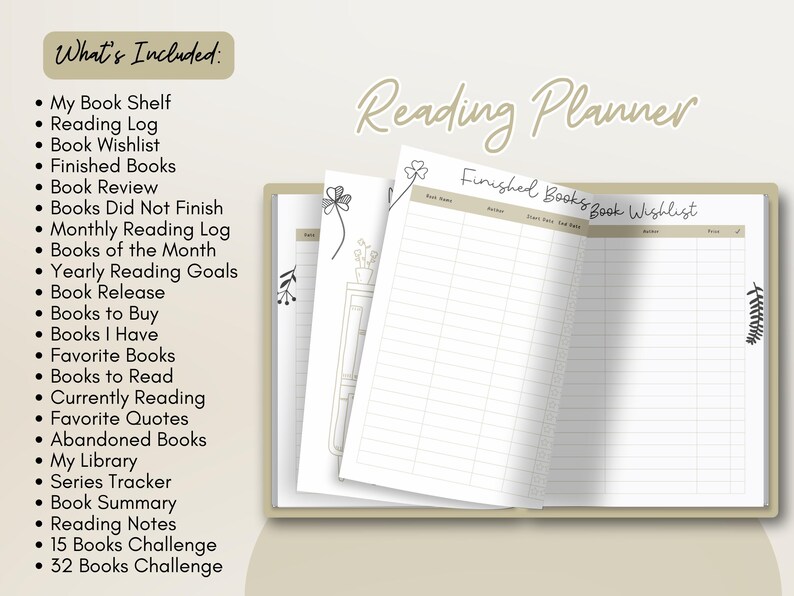 What's Included:
My Book Shelf
Reading Log
Book Wishlist
Finished Books
Book Review
Books Did Not Finish
Monthly Reading Log
Books of the Month
Yearly Reading Goals
Book Release
Books to Buy
Books I Have
Favorite Books
Books to Read
Currently Reading
Favorite Quotes
Abandoned Books
My Library
Series Tracker
Book Summary
Reading Notes
15 Books Challenge
32 Books Challenge
Reading Planner
Date
Finished Books
Book Name Author Start Date End Date
Book Wishlist
Author Price ✓